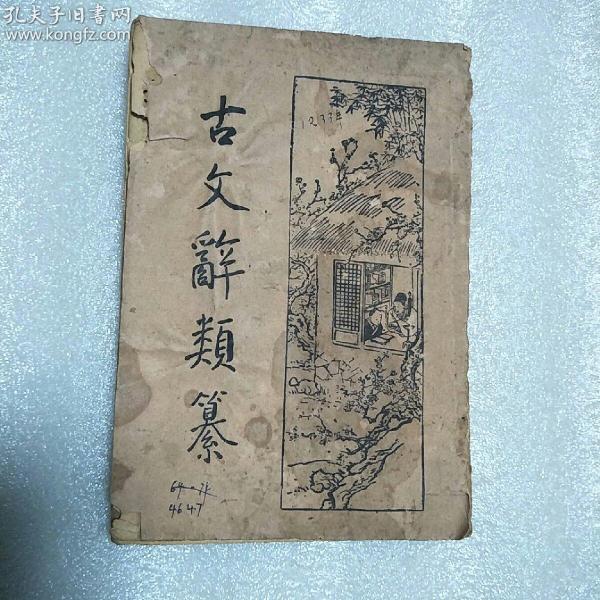 孔夫子旧书网
www.kongfz.com
古文辭類纂
4647